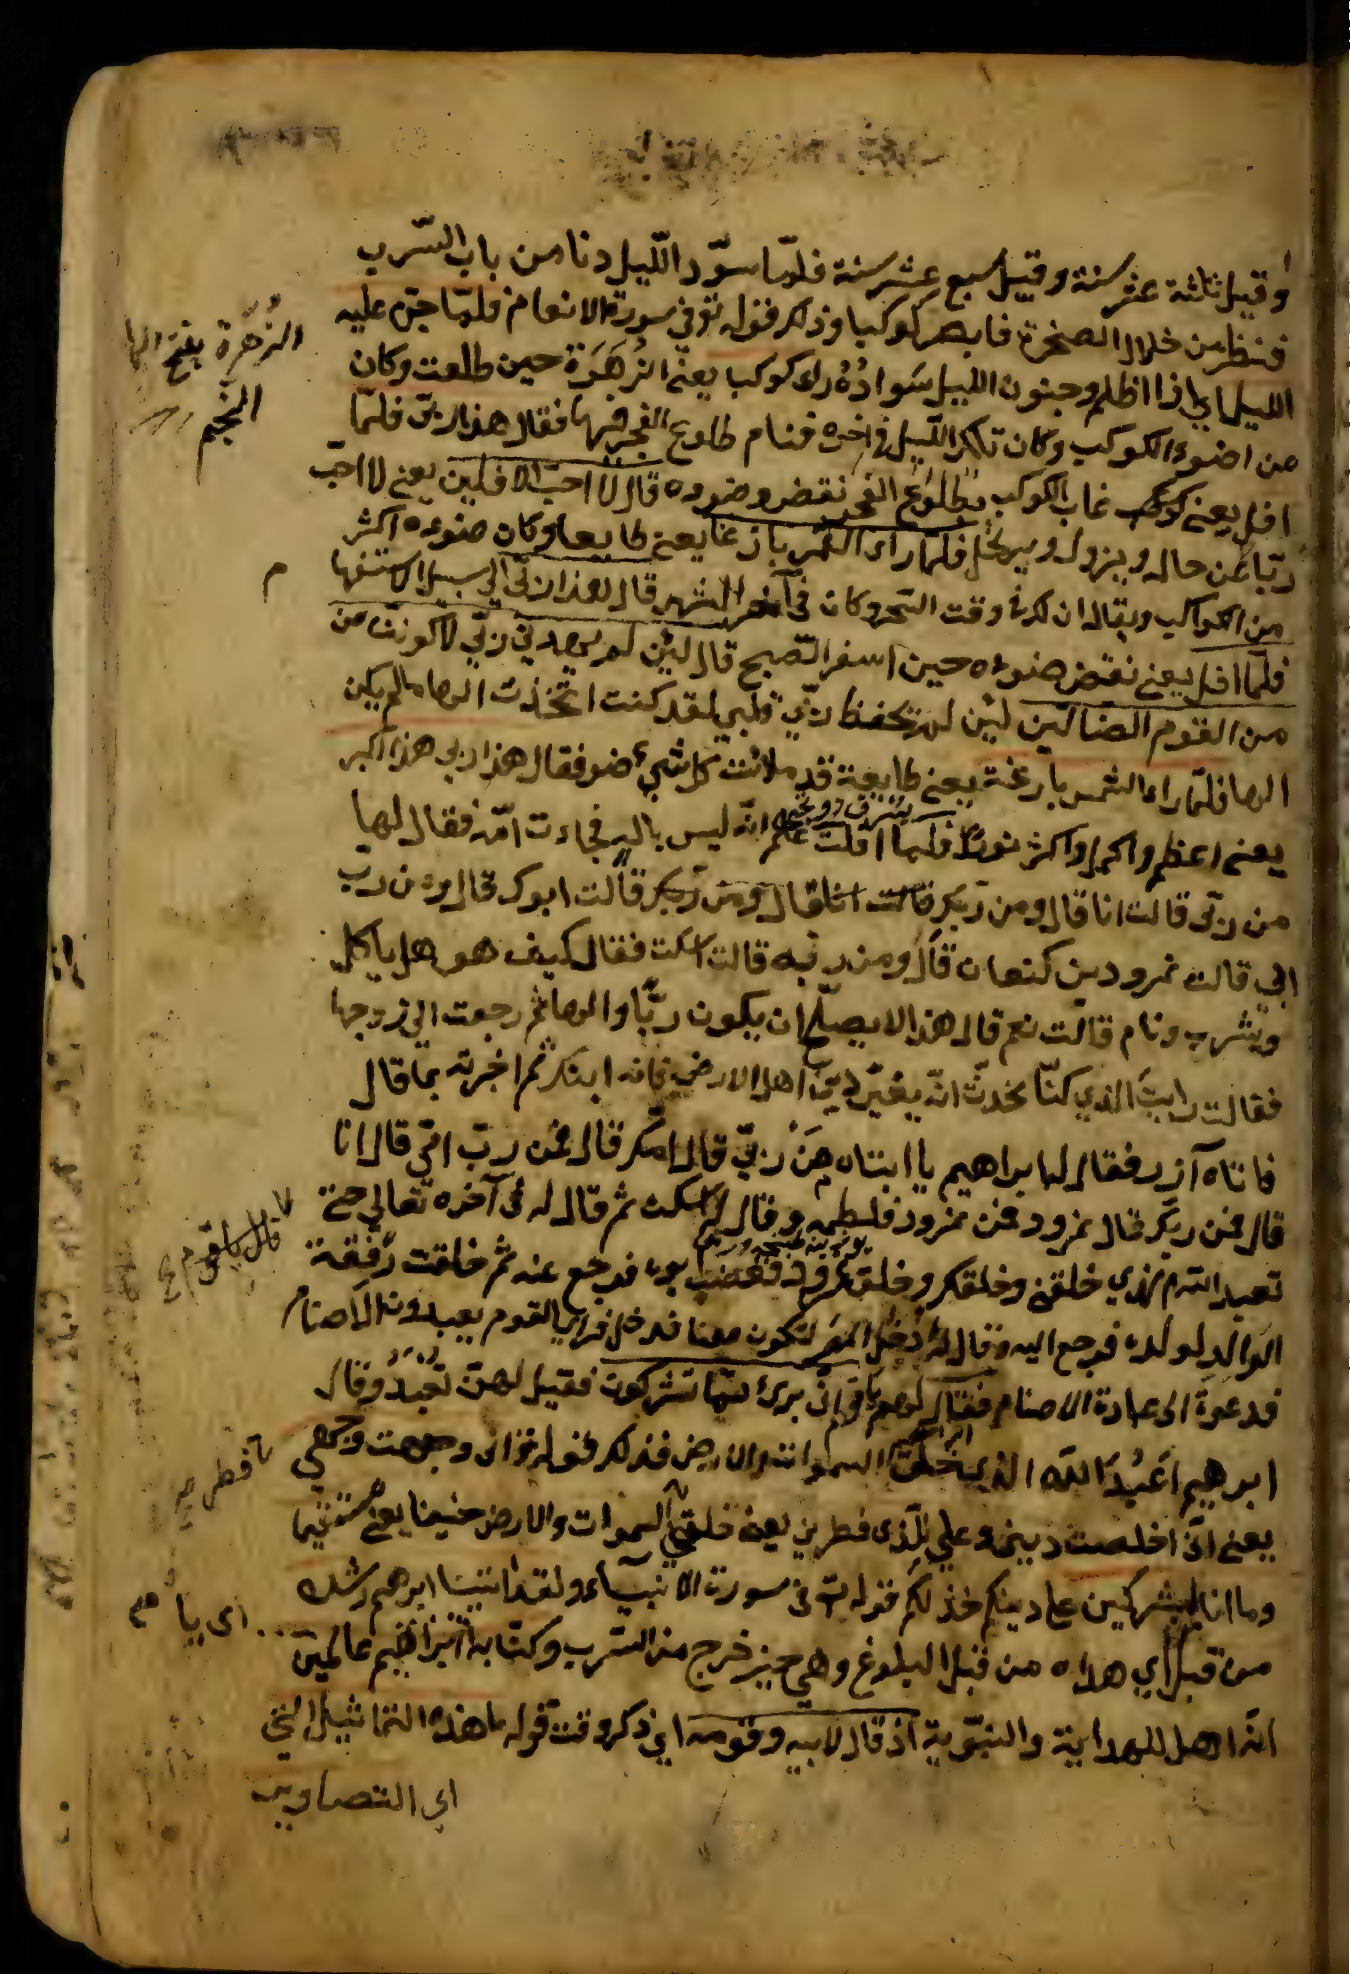 وقيل ثلثة عشر سنة وقيل سبع عشر سنة فلمّا سوّد اللّيل دنا من باب السّرب
فنظر من خلال الصخرة فابصر كوكبا وذلك قوله تع في سورة الانعام فلمّا جنّ عليه
الليل اي اذا اظلم وجنون الليل سَوادُهُ راى كوكبا يعني الزهَرَة حين طلعت وكان
من اضوء الكوكب وكان تلك اللّيل في اخره فنام طلوع الفجر فيها فقال هذا ربّي فلمّا
افل يعني غاب الكوكب بطلوع الفجر نقض وضوءه قال لا احبّ الافلين يعني لا احبّ
ربّا عن حاله ويزول ويرتحل فلمّا راى القمر بازغا يعني طايعا وكان ضوءه اكثر
من الكواكب ويقال ان وقت السّحر وكان في آخر الشهر قال هذا ربّي الي سبيل الاستفها م
فلمّا افل يعني نقض ضوءه حين اسفر الصّبح قال لئن لم يهدني ربّي لاكوننّ من
من القوم الضالّين لئن لم يحفظ ربّي قلبي لقد كنت اتّخذت الها ما لم يكن
الها فلمّا راى الشمس بازغة يعني طايعة قد ملائت كل شيء ضو فقال هذا ربي هذا اكبر
يعني اعظم واكبر واكثر نورًا فلمّا افلت علم انّه ليس باله فجاءت امّه فقال لها
من ربّي قالت انا قال ومن ربّك قالت ابوك قال ومن ربّ
ابي قالت نمرود بن كنعان قال ومن ربه قالت اسكت فقال كيف هو هل ياكل
ويشرب ونام قالت نعم قال هذا لا يصلح ان يكون ربّا والها ثم رجعت الي زوجها
فقالت رايت الذي كنّا نحدث انّه يغيّر دين اهل الارض فانه ابنك ثم اخبرته بما قال
فاتاه آزر فقال له ابراهيم يا ابتاه مَن ربّي قال امّك قال فمن ربّ امّي قال انا
قال فمن ربّك قال نمرود قال فمن نمرود فلطمه وقال له اسكت ثم قال له في آخره تعالي حتي
تعبد الله الذي خلقني وخلقك وخلق نمرود فغضب بوه فرجع عنه ثم خلقت رفقة
الوالد لولده فرجع اليه وقال له ادخل المصر لتكون معنا فدخل فراى القوم يعبدون الاصنام
فدعوة الى عبادة الاصنام فقال لهم يا قوم اني برئ ممّا تشركون فقيل لهمن تعبدُ وقال
ابرهيم اَعبُدُ اللّه الذي خلق السموات والارض فذلك قوله تع اني وجهت وجهي
يعني انّي اخلصت ديني وعلي للّذي فطر ني يعني خلقني السموات والارض حنيفا يعني مستقيما
وما انا من المشركين على دينكم فذلك قوله تع في سورة الانبيآء ولقد اتينا ابرهم رشده
من قبل اي هداه من قبل البلوغ وهي حين خرج من السّرب وكنّا به عالمين
انّه اهل للهداية والنبّوية اذ قال لابيه وقومه اي ذكر وقت قوله ما هذه التماثيل التي
اي التصاوير
الزُهَرة بفتح الها
النجم
قال يا قوم
فطر
اي بيا